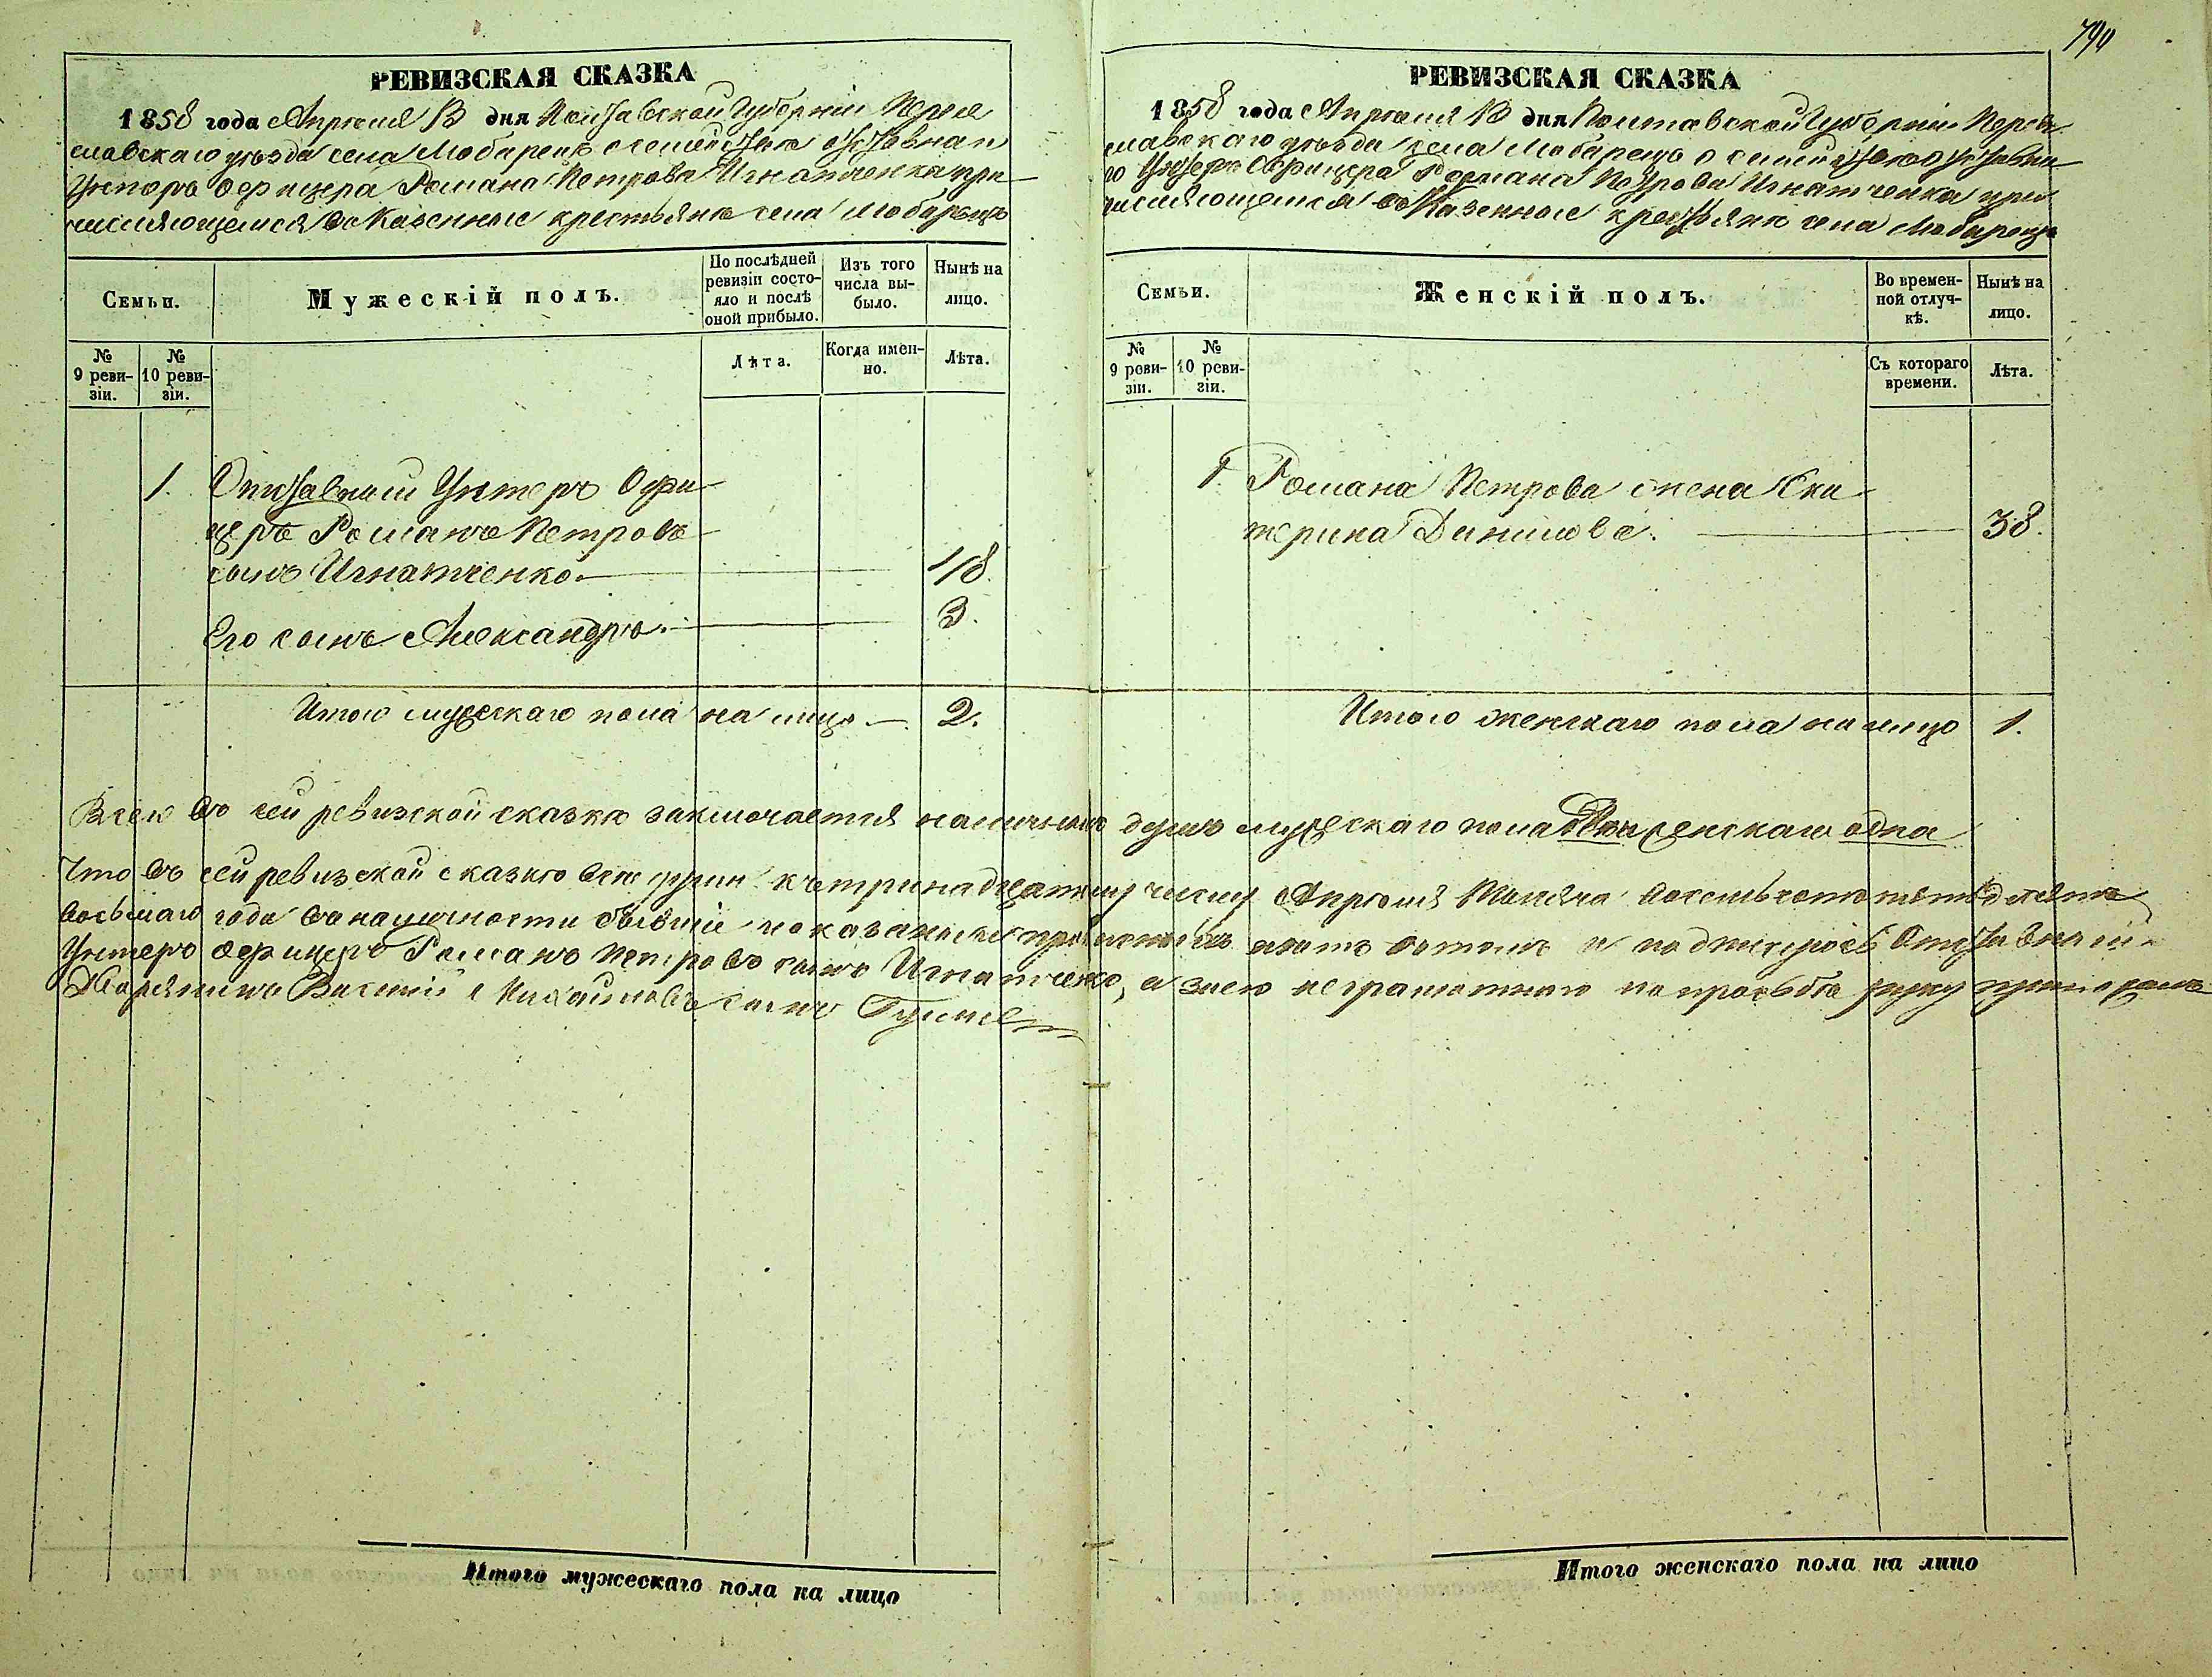 790
РЕВИЗСКАЯ СКАЗКА
1858 года Апрѣля 13 дня Полтавской Губерніи Перея
славскаго уѣзда села Мобарецъ о семействѣ отставнаго
Унтеръ Офицера Романа Петрова Игнатченка при
числяющемся въ Казенные крестьяне села Мобарецъ
Семьи.
Мужескій полъ.
По послѣдней
ревизіи состо-
яло и послѣ
оной прибыло.
Изъ того
числа вы-
было.
Нынѣ на
лицо.
№
9 реви-
зіи.
№
10 реви-
зіи.
Лѣта.
Когда имен-
но.
Лѣта.
1. Отставной Унтеръ Офи
церъ Романъ Петровъ
сынъ Игнатченко 48.
Его сынъ Александръ 3.
Итого мужескаго пола на лицо 2.
РЕВИЗСКАЯ СКАЗКА
1858 года Апрѣля 13 дня Полтавской Губерніи Перея
славскаго уѣзда села Мобарецъ о семействѣ отставна
го Унтеръ Офицера Романа Петрова Игнатченка при
числяющемся въ Казенные крестьяне села Мобарецъ
Семьи.
Женскій полъ.
Во времен-
ной отлуч-
кѣ.
Нынѣ на
лицо.
№
9 реви-
зіи.
№
10 реви-
зіи.
Съ котораго
времени.
Лѣта.
1. Романа Петрова жена Ека
терина Данилова. 38.
Итого женскаго пола на лицо 1.
Всего въ сей ревизской сказкѣ заключается наличныхъ душъ мужескаго пола двѣ женскаго одна
Что въ сей ревизской сказкѣ всѣ души къ тринадцатому числу Апрѣля Мѣсяца восемьсотъ пятьдесятъ
восьмаго года въ наличности бывшіе показаны и и подписуюсь Отставной
Унтеръ Офицеръ Романъ Петровъ сынъ Игнатченко, а за него неграмотнаго по прозьбѣ руку приложилъ
Дворянинъ Василій Михайловъ сынъ
Итого мужескаго пола на лицо
Итого женскаго пола на лицо